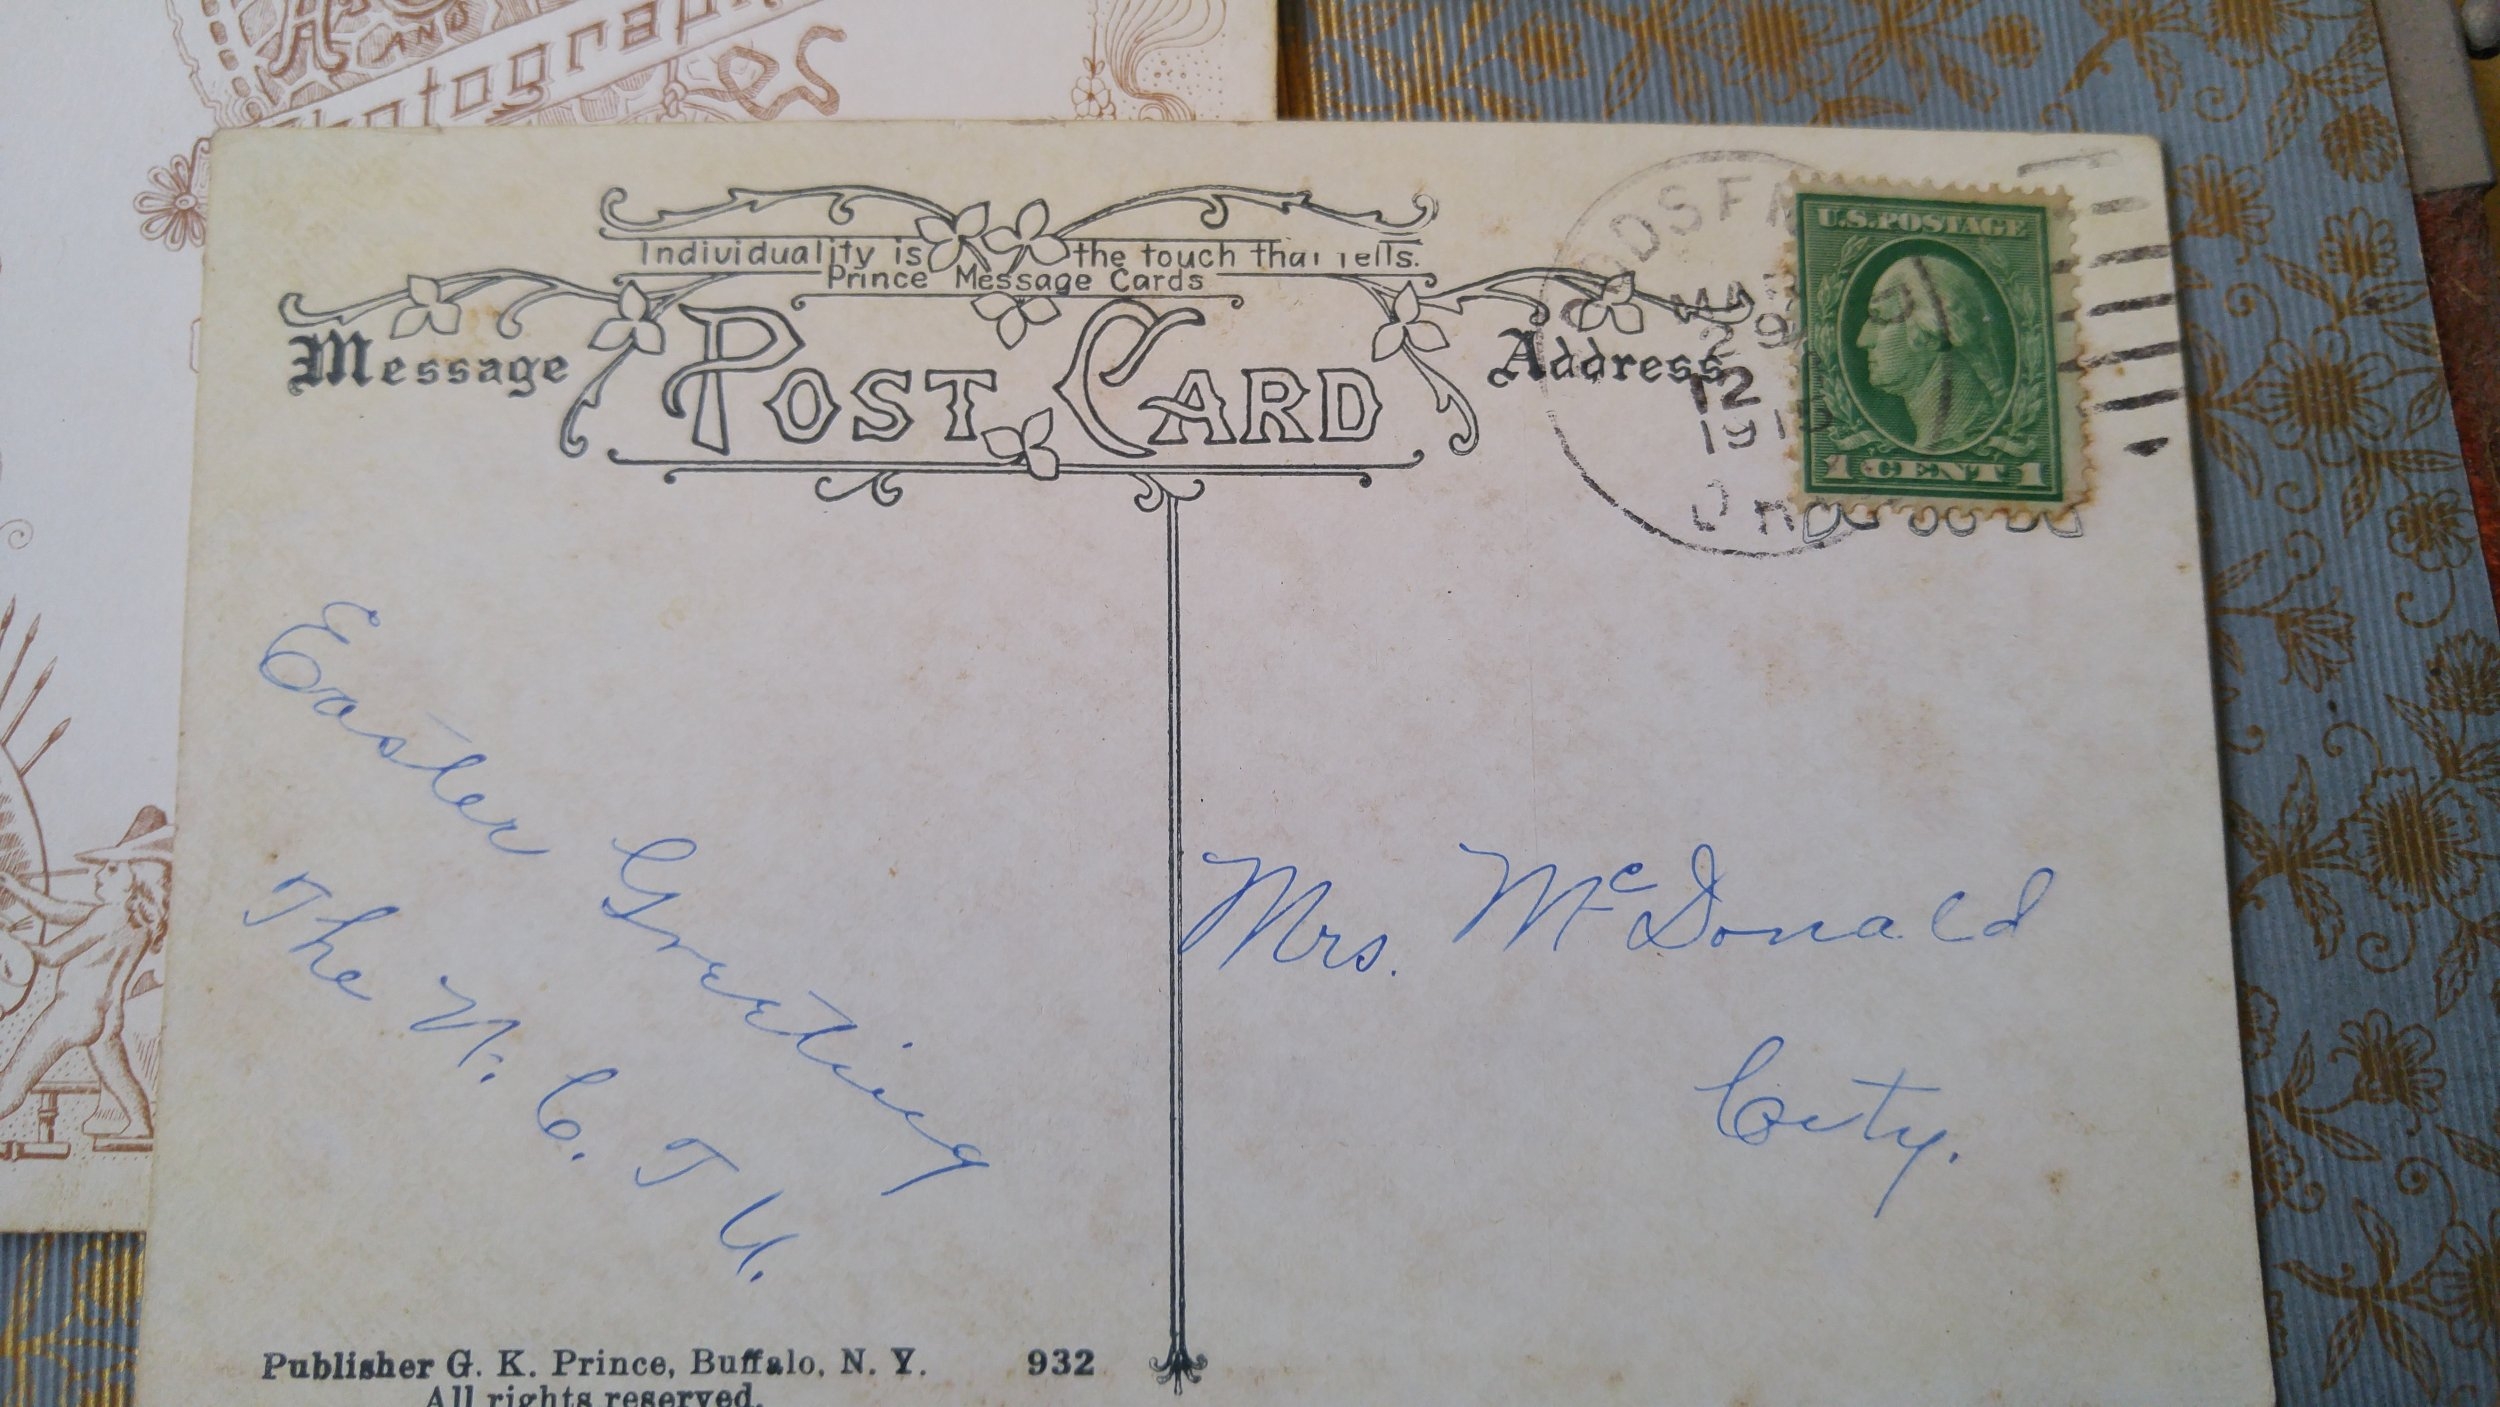 AND
Photograph
es
Individuality is the touch that tells.
Prince Message Cards
Message
POST CARD
Address
ODSF
MA
29
12
191
U.S. POSTAGE
1 CENT 1
Easter Greeting
The W. C. T U.
Mrs. McDonald
City.
Publisher G. K. Prince, Buffalo, N. Y. 932
All rights reserved.